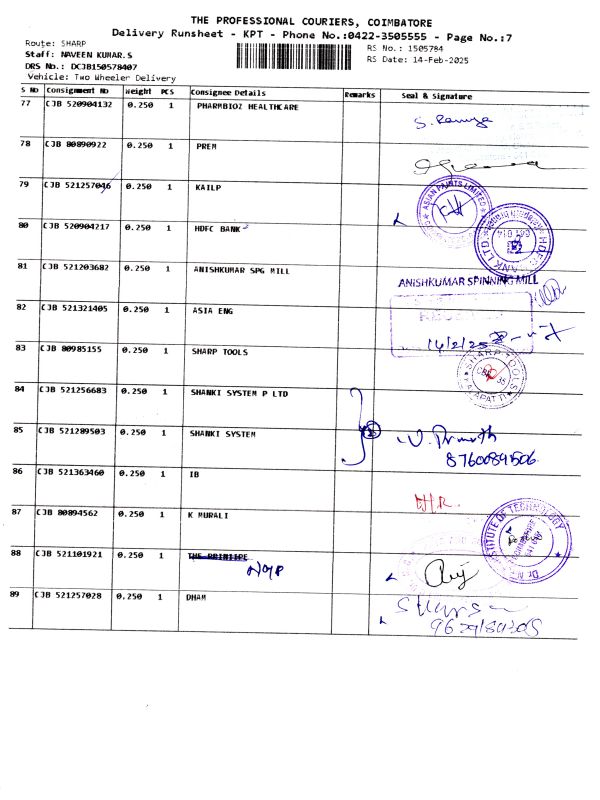 THE PROFESSIONAL COURIERS, COIMBATORE
Delivery Runsheet - KPT - Phone No.:0422-3505555 - Page No.:7
Route: SHARP
RS No.: 1505784
Staff: NAVEEN KUMAR.S
RS Date: 14-Feb-2025
DRS No.: DCJB150578407
Vehicle: Two Wheeler Delivery
S No Consignment No Weight PCS Consignee Details Remarks Seal & Signature
77 CJB 520904132 0.250 1 PHARMBIOZ HEALTHCARE
S. Ramya
78 CJB 80890922 0.250 1 PREM
79 CJB 521257046 0.250 1 KAILP
ASIAN PAINTS LIMITED
80 CJB 520904217 0.250 1 HDFC BANK
641 014
81 CJB 521203682 0.250 1 ANISHKUMAR SPG MILL
ANISHKUMAR SPINNING MILL
82 CJB 521321405 0.250 1 ASIA ENG
14/2/25
83 CJB 80985155 0.250 1 SHARP TOOLS
SHARP TOOLS
CBE 35
84 CJB 521256683 0.250 1 SHANKI SYSTEM P LTD
85 CJB 521289503 0.250 1 SHANKI SYSTEM
8760089506
86 CJB 521363460 0.250 1 IB
87 CJB 80894562 0.250 1 K MURALI
INSTITUTE OF TECHNOLOGY
88 CJB 521101921 0.250 1
89 CJB 521257028 0.250 1 DHAM